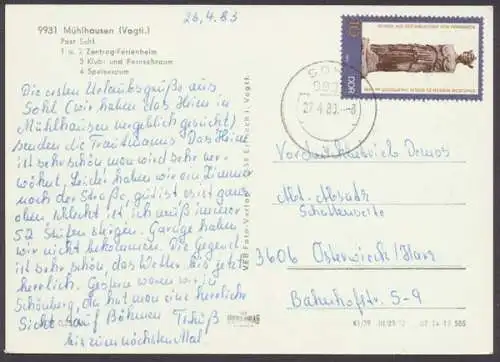 26.4.83
9931 Mühlhausen (Vogtl.)
Post Sohl
1 u. 2 Zentrag-Ferienheim
3 Klub- und Fernsehraum
4 Speiseraum
Die ersten Urlaubsgrüße aus
Sohl (wir haben das Heim in
Mühlhausen vergeblich gesucht)
senden die Trautmanns. Das Heim
ist sehr schön man wird sehr ver-
wöhnt. Leider haben wir ein Zimmer
nach der Straße, gut ist es ist ganz
oben. Schlecht ist ich muß immer
52 Stufen steigen. Garage haben
wir nicht bekommen. Die Gegend
ist sehr schön, das Wetter bis jetzt
herrlich. Gestern waren wir in
Schönberg, da hat man eine herrliche
Sicht auf Böhmen Tschüß
bis zum nächsten Mal
VEB Foto-Verlag
Vogtl.
10
DDR
SOHL
993
27.4.83.-8
Vordruckbetrieb Demos
Abt. Absatz
3606 Osterwieck/Harz
Bahnhofstr. 5-9